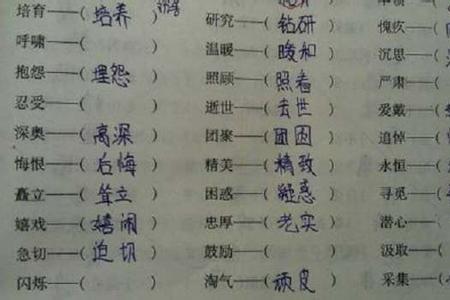 培育——(培养) 研究——(钻研) 愧疚——(
呼啸——( ) 温暖——(暖和) 沉思——(
抱怨——(埋怨) 照顾——(照看) 严肃——(
忍受——( ) 逝世——(去世) 爱戴——(
深奥——(高深) 团聚——(团圆) 追悼——(
悔恨——(后悔) 精美——(精致) 永恒——(
矗立——(耸立) 困惑——(疑惑) 寻觅——(
嬉戏——(嬉闹) 忠厚——(老实) 潜心——(
急切——(迫切) 鼓励——( ) 汲取——(
闪烁——( ) 淘气——(顽皮) 采集——(